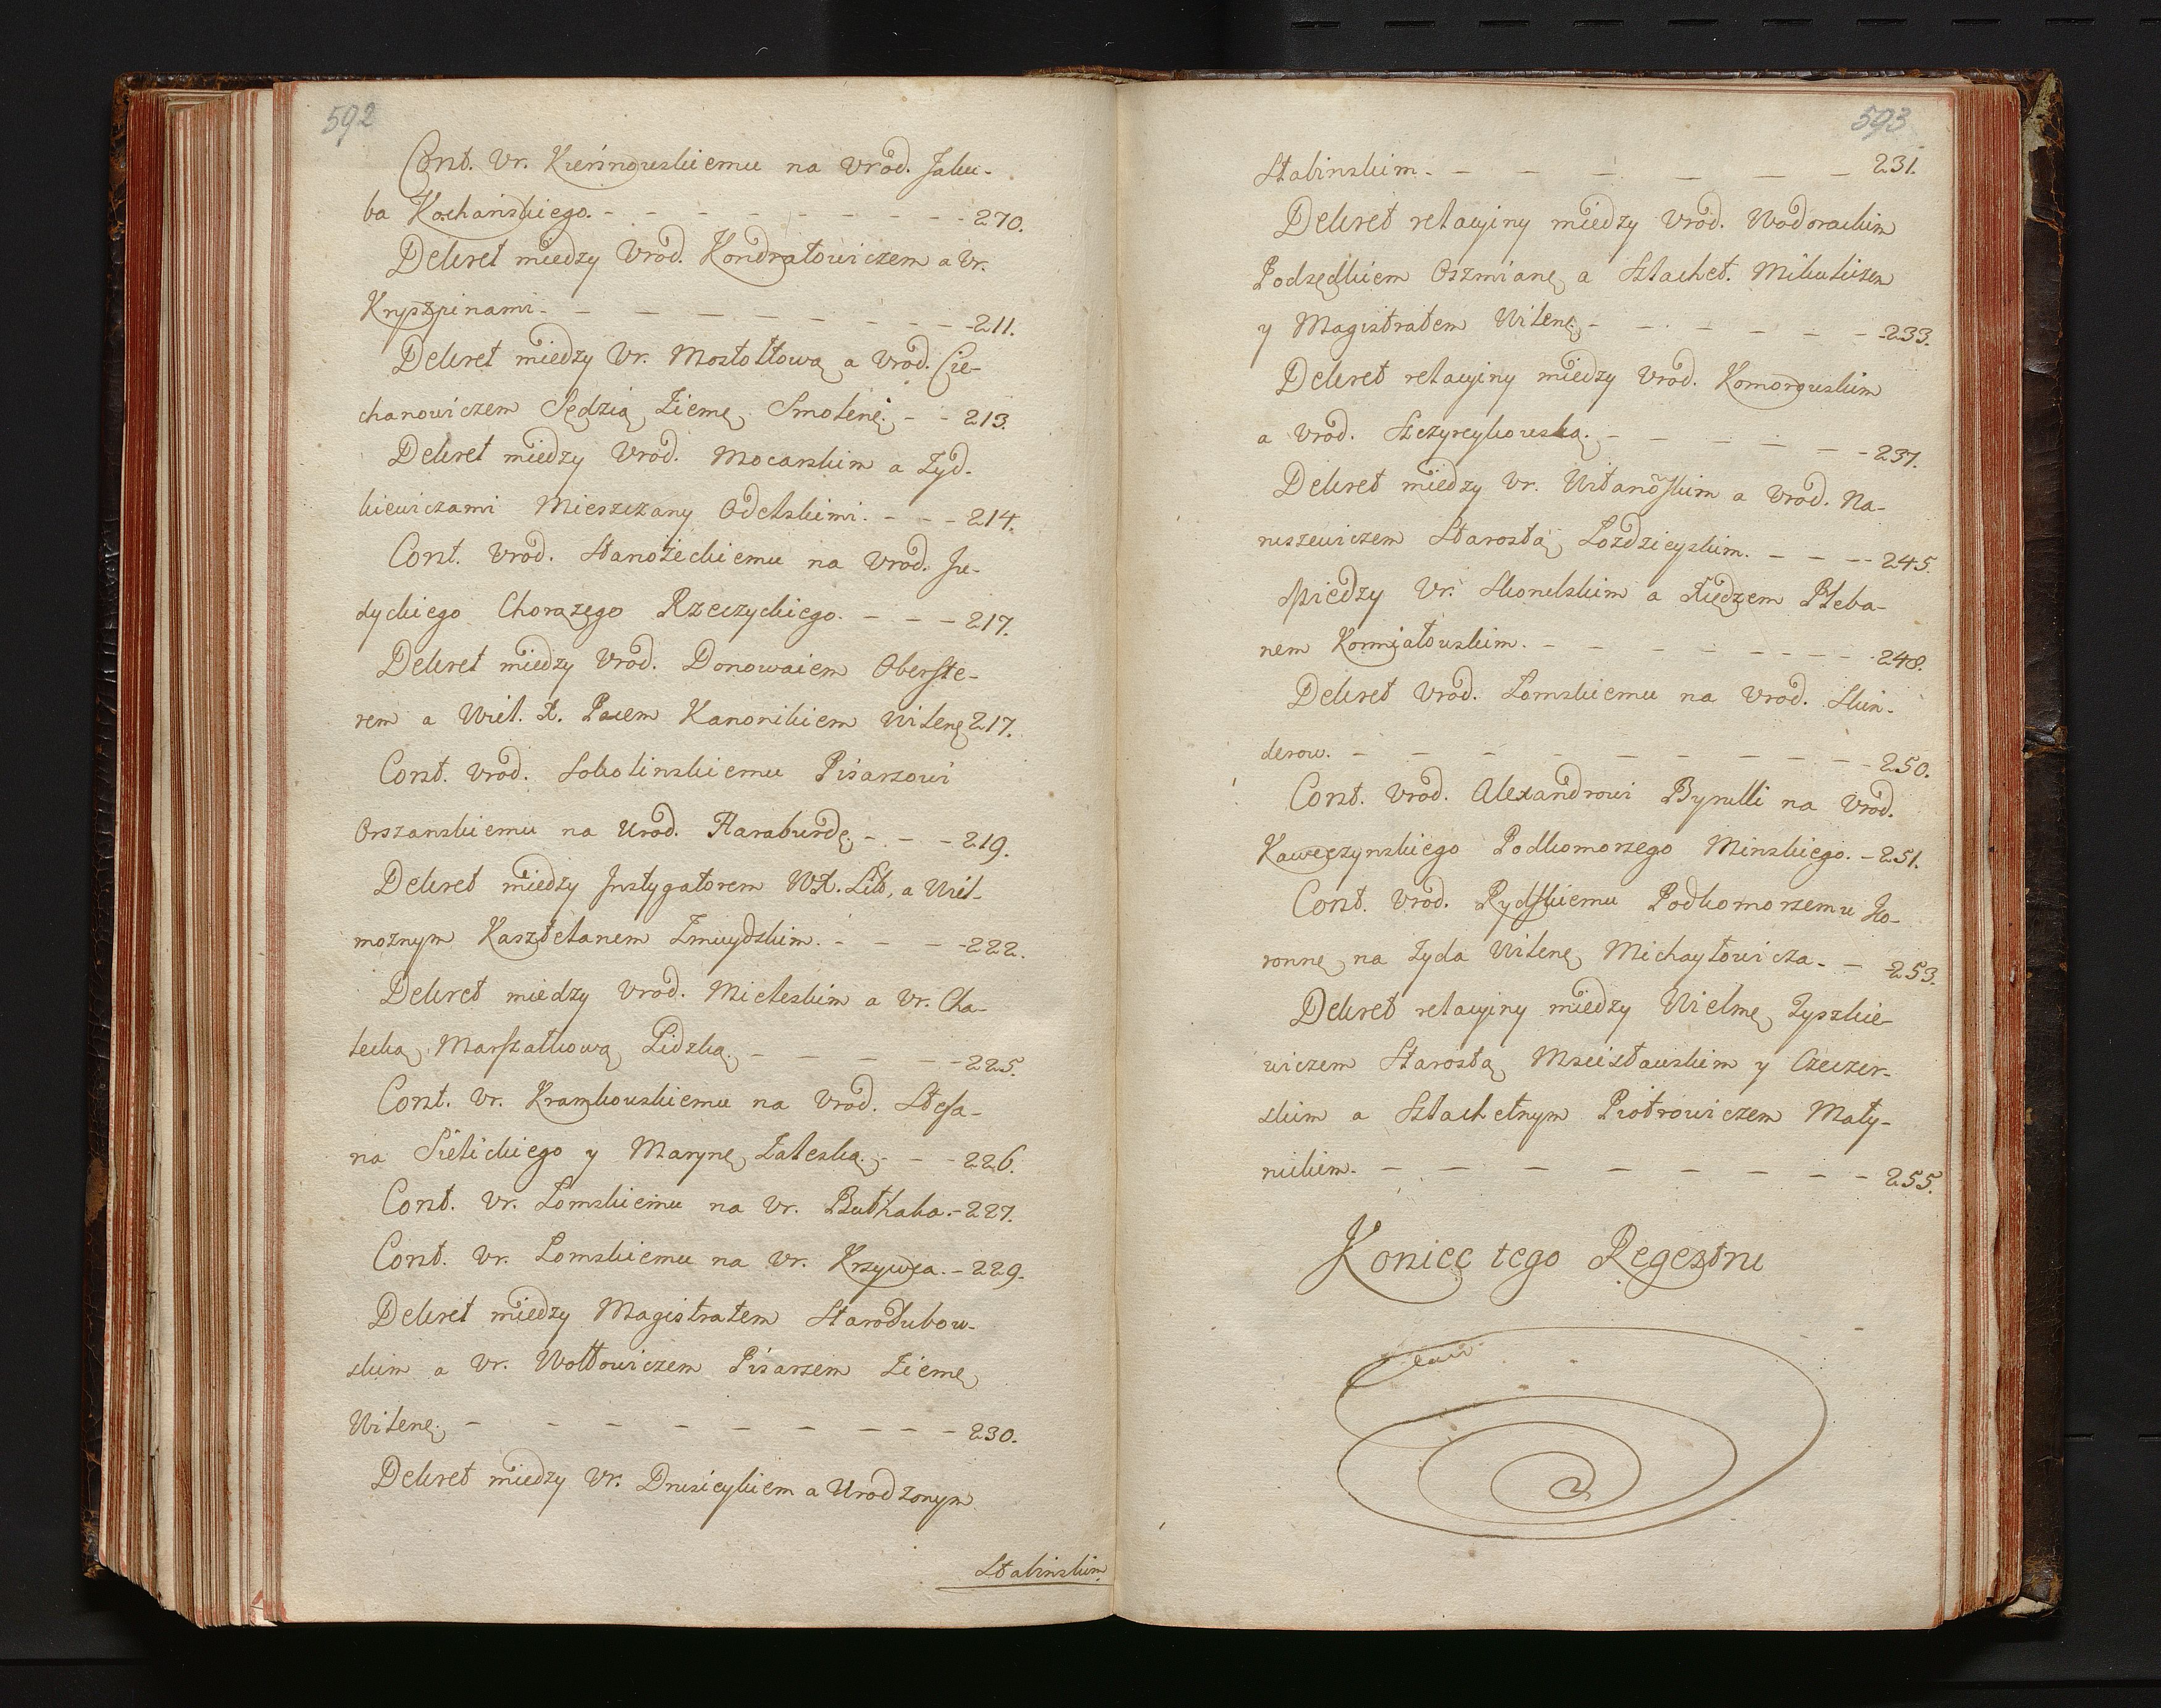 592
Cont. Vr. Kieńnowskiemu na Vrod. Jaku-
ba Kochańskiego. - - - - - - - - - 270.
Dekret miedzy Vrod. Kondratowiczem a Vr.
Kryszpinami. - - - - - - - - - 211.
Dekret miedzy Vr. Mostołtową a Vrod. Cie-
chanowiczem Sędzią Ziemę. Smolenę. - - 213.
Dekret miedzy Vrod. Mocarskim a Zyd-
kiewiczami Mieszczany Odelskimi. - - - 214.
Cont. Vrod. Stanożeckiemu na Vrod. Ju-
dyckiego Chorązego Rzeczyckiego. - - - 217.
Dekret miedzy Vrod. Donowaiem Oberste-
rem a Wiel. X. Pacem Kanonikiem Wilenę 217.
Const. Vrod. Sokolinskiemu Pisarzowi
Orszanskiemu na Urod. Haraburdę. - - - 219.
Dekret miedzy Instygatorem WX. Lit, a Wiel-
moznym Kasztelanem Zmuydskim. - - - - 222.
Dekret miedzy Vrod. Mieleskim a Vr. Cha-
lecką Marszałkową Lidzką. - - - - - 225.
Const. Vr. Kramkowskiemu na Vrod. Stefa-
na Sielickiego y Marynę Zaleską. - - - 226.
Const. Vr. Lomskiemu na Vr. Buthaka. - 227.
Const. Vr. Lomskiemu na Vr. Krzywca. - 229.
Dekret miedzy Magistratem Starodubow-
skim a Vr. Wołłowiczem Pisarzem Ziemę
Wilenę. - - - - - - - - - - 230.
Dekret miedzy Vr. Drusieykiem a Urodzonym
Stabinskim
593
Stabinskim. - - - - - - - 231.
Dekret relacyiny miedzy Vrod. Wodorackim
Podsędkiem Oszmianę a Szlachet. Mikuliczem
y Magistratem Wilenę. - - - - - - - 233.
Dekret relacyiny miedzy Vrod. Komorowskim
a Vrod. Szczyrcykowską. - - - - - - 237.
Dekret miedzy Vr. Witanowskim a Vrod. Na-
ruszewiczem Starostą Łozdzieyskim. - - - - 245.
Miedzy Vr. Skonelskim a Xiedzem Pleba-
nem Kormiałowskim. - - - - - - - - 248.
Dekret Vrod. Lomskiemu na Vrod. Skin-
derow. - - - - - - - - - 250.
Const. Vrod. Alexandrowi Bynelli na Vrod.
Kawęczynskiego Podkomorzego Minskiego. - 251.
Const. Vrod. Rydskiemu Podkomorzemu Ko-
ronnę na Zyda Wilenę Michayłowicza. - - 253.
Dekret relacyiny miedzy Wielmę Tyszkie-
wiczem Starostą Mscisławskim y Czeczer-
skim a Szlachetnym Piotrowiczem Maty-
nickim. - - - - - - - - - 255.
Koniec tego Regestru